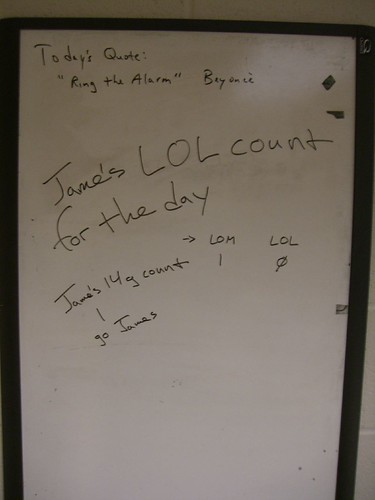 Today's Quote:
"Ring the Alarm" Beyoncè
Jame's LOL count
for the day
→ LOM LOL
Jame's 14g count 1 Ø
1
go James